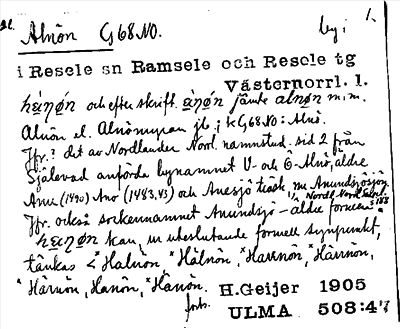 Alnön G68 NO. by i 1.
i Resele sn Ramsele och Resele tg
Västernorrl. l.
och efter skrift. jämte m.m.
Alnön el. Alnömyran jb, i kG68.NO: Alnö.
Jfr. ? det av Nordlander Norrl. namnstud. sid 2 från
Själevad anförda bynamnet U- och Ö-Alnö, äldre
Anu (1490) Anö (1483, 43) och Anesjö nu Anundsjösjön
Jfr. också sockennamnet Anundsjö - äldre former
kan, ur uteslutande formell synpunkt,
tänkas < *Halnön, *Hålnön, *Harnnön, *Härnnön,
*Härnön, *Hanön, *Hånön. H.Geijer 1905
forts. ULMA 508:47